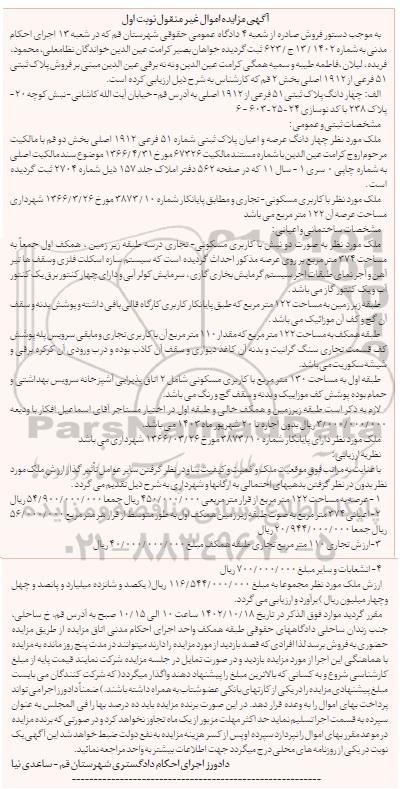 آگهی مزایده اموال غیر منقول نوبت اول
به موجب دستور فروش صادره از شعبه ۴ دادگاه عمومی حقوقی شهرستان قم که در شعبه ۱۳ اجرای احکام
مدنی به شماره ۱۴۰۲ / ۱۳ ج / ۶۲۳ ثبت گردیده خواهان بصیر کرامت عین الدین خواندگان نظامعلی، محمود،
فریده، لیلان، فاطمه طیبه و سمیه همگی کرامت عین الدین و ننه برقی عین الدین مبنی بر فروش پلاک ثبتی
۵۱ فرعی از ۱۹۱۲ اصلی بخش ۲ قم که کارشناس به شرح ذیل ارزیابی کرده است.
الف: چهار دانگ پلاک ثبتی ۵۱ فرعی از ۱۹۱۲ اصلی به آدرس قم - خیابان آیت الله کاشانی - نبش کوچه ۲۰ -
پلاک ۲۳۸ با کد نوسازی ۲۴ - ۲۵ - ۶۰۳ - ۶
مشخصات ثبتی و عمومی:
ملک مورد نظر چهار دانگ عرصه و اعیان پلاک ثبتی شماره ۵۱ فرعی ۱۹۱۲ اصلی بخش دو قم با مالکیت
مرحوم اروج کرامت عین الدین با شماره مستند مالکیت ۶۷۳۲۶ مورخ ۱۳۶۶/۴/۳۱ موضوع سند مالکیت اصلی
به شماره چاپی ۰ سری ۱ - سال ۱۱ که در صفحه ۵۶۲ دفتر املاک جلد ۱۵۷ ذیل شماره ۲۷۰۴ ثبت گردیده
است.
ملک مورد نظر با کاربری مسکونی - تجاری و مطابق پایانکار شماره ۳۸۷۳/۱۰ مورخ ۱۳۶۶/۳/۲۶ شهرداری
مساحت عرصه آن ۱۲۲ متر مربع می باشد
مشخصات ساختمانی و اعیانی:
ملک مورد نظر به صورت دو نبش با کاربری مسکونی - تجاری در سه طبقه زیر زمین، همکف اول جمعاً به
مساحت ۳۷۴ متر مربع بر روی عرصه مذکور احداث گردیده است که سیستم سازه اسکلت فلزی و سقف ها تیر
آهن و آجر نمای طبقات آجر سیستم گرمایش بخاری گازی، سرمایش کولر آبی و دارای چهار کنتور برق یک کنتور
آب و یک کنتور گاز می باشد.
طبقه زیر زمین به مساحت ۱۲۲ متر مربع که طبق پایانکار کاربری کارگاه قالی بافی داشته و پوشش بدنه و سقف
آن گچ و کف آن موزائیک می باشد.
طبقه همکف به مساحت ۱۲۲ متر مربع که مقدار ۱۱۰ متر مربع آن با کاربری تجاری و مابقی سرویس پله پوشش
کف قسمت تجاری سنگ گرانیت و بدنه آن کاغذ دیواری و سقف آن کلاب بوده و درب ورودی آن کرکره برقی و
شیشه سکوریت می باشد.
طبقه اول به مساحت ۱۳۰ متر مربع با کاربری مسکونی شامل ۲ اتاق پذیرایی آشپزخانه سرویس بهداشتی و
حمام بوده پوشش کف موزاییک و بدنه و سقف گچ و رنگ می باشد.
لازم به ذکر است طبقه زیرزمین و همکف خالی و طبقه اول در اختیار مستاجر آقای اسماعیل افکار با ودیعه
۳/۰۰۰/۰۰۰/۰۰۰ ریال بدون اجاره تا ۲۰ شهریور ماه ۱۴۰۲ می باشد.
ملک مورد نظر دارای پایانکار شماره ۳۸۷۳/۱۰ مورخ ۱۳۶۶/۰۳/۲۶ شهرداری می باشد
نظریه ارزیابی:
با عنایت به مراتب فوق موقعیت ملک و کمیت و کیفیت بنا و در نظر گرفتن سایر عوامل تأثیرگذار ارزش ملک مورد
نظر بدون در نظر گرفتن بدهیهای احتمالی به ارگانها و شهرداری به شرح ذیل تقدیم می گردد.
۱ - عرصه به مساحت ۱۲۲ متر مربع از قرار متر مربعی ۴۵۰/۰۰۰/۰۰۰ ریال جمعا ۵۴/۹۰۰/۰۰۰/۰۰۰ ریال
۲ - اعیانی ۳۷۴ متر مربع به صورت طبقه زیرزمین همکف اول به طور متوسط از قرار هر متر مربع ۵۶/۰۰۰/۰۰۰
ریال جمعا ۲۰/۹۴۴/۰۰۰/۰۰۰ ریال
۳ - ارزش تجاری ۱۱۰ متر مربع تجاری طبقه همکف مبلغ ۴۰/۰۰۰/۰۰۰/۰۰۰ ریال
۴ - انشعابات و سایر مبلغ ۷۰۰/۰۰۰/۰۰۰ ریال
ارزش ملک مورد نظر مجموعا به مبلغ ۱۱۶/۵۴۴/۰۰۰/۰۰۰ ریال (یکصد و شانزده میلیارد و پانصد و چهل
و چهار میلیون ریال) برآورد و ارزیابی می گردد.
مقرر گردید موارد فوق الذکر در تاریخ ۱۴۰۲/۱۰/۱۸ ساعت ۱۰ الی ۱۰/۱۵ صبح به آدرس قم، خ ساحلی،
جنب زندان ساحلی دادگاههای حقوقی طبقه همکف واحد اجرای احکام مدنی اتاق مزایده از طریق مزایده
حضوری به فروش برسد لذا افرادی که قصد بازدید از مورد مزایده را دارند میتوانند در مدت پنج روز مانده به مزایده
با هماهنگی این اجرا از مورد مزایده بازدید و در صورت تمایل در جلسه مزایده شرکت نمایند قیمت پایه از مبلغ
کارشناسی شروع و به کسانی که بالاترین مبلغ را پیشنهاد دهند واگذار میگردد (که شرکت کنندگان می بایست
مبلغ پیشنهادی مزایده را در یکی از کارتهای بانکی عضو شتاب به همراه داشته باشند.) ضمناً دادورز اجرا می تواند
پرداخت بهای اموال را به وعده قرار دهد. در این صورت برنده مزایده باید ده درصد بها را فی المجلس به عنوان
سپرده به قسمت اجرا تسلیم نماید حد اکثر مهلت مزبور از یک ماه تجاوز نخواهد کرد و در صورتی که برنده مزایده
در موعد مقرر بهای اموال را نپردازد سپرده او پس از کسر هزینه مزایده به نفع دولت ضبط خواهد شد این آگهی یک
نوبت در یکی از روزنامه های محلی درج میگردد جهت اطلاعات بیشتر به واحد مراجعه نمائید.
دادورز اجرای احکام دادگستری شهرستان قم - ساعدی نیا